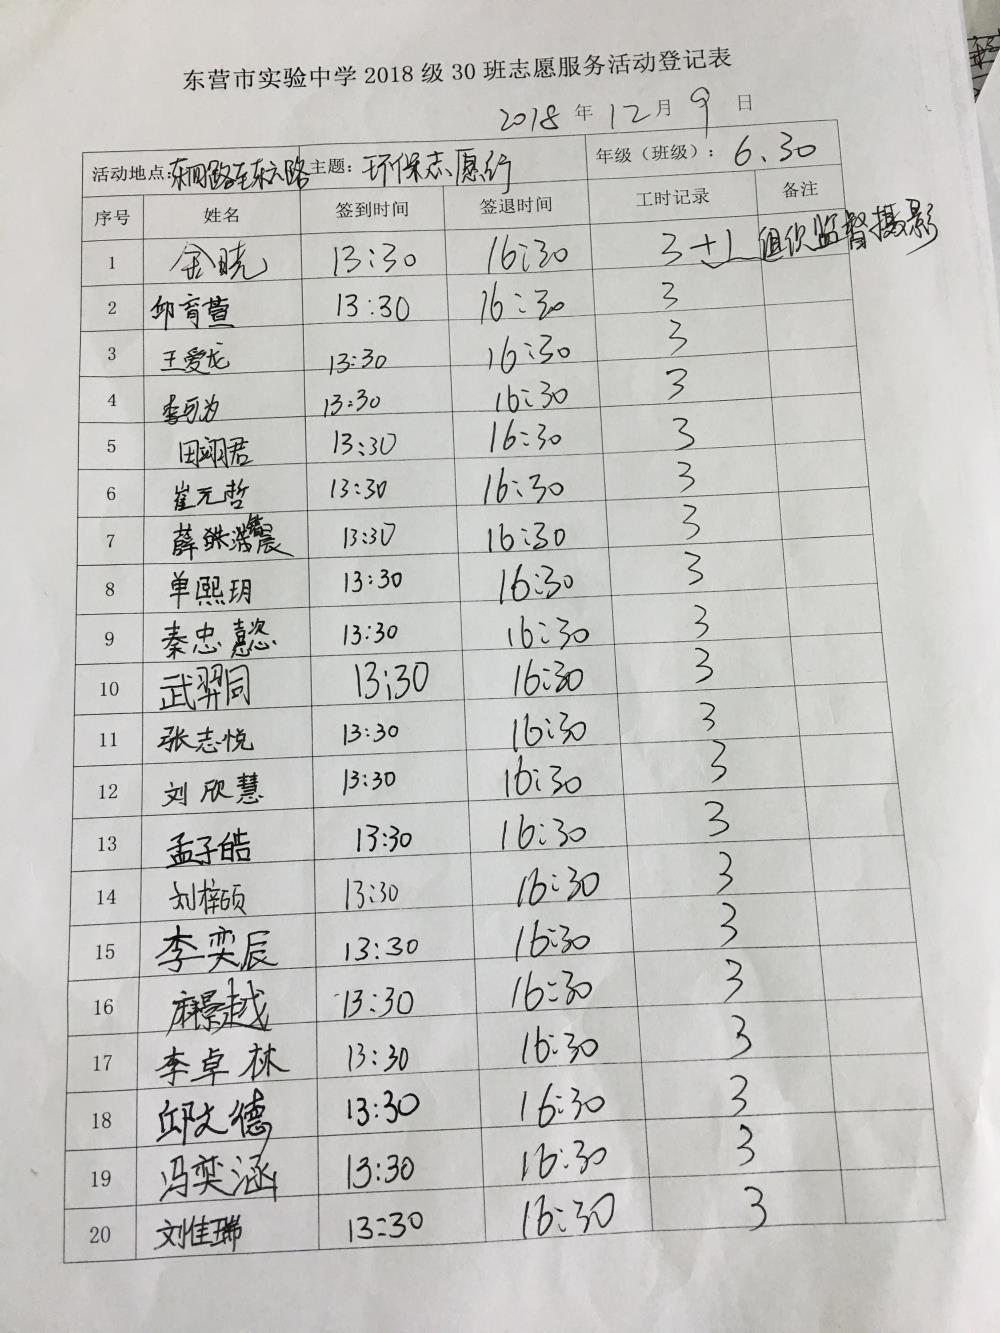 东营市实验中学 2018 级 30 班志愿服务活动登记表
2018 年 12 月 9 日
活动地点：东四路至东六路 主题：环保志愿行 年级（班级）：6.30
序号 姓名 签到时间 签退时间 工时记录 备注
1 金晓 13:30 16:30 3+1 组织监督摄影
2 邱育萱 13:30 16:30 3
3 王爱龙 13:30 16:30 3
4 李可为 13:30 16:30 3
5 田翊君 13:30 16:30 3
6 崔元哲 13:30 16:30 3
7 薛 13:30 16:30 3
8 单熙玥 13:30 16:30 3
9 秦忠懿 13:30 16:30 3
10 武羿同 13:30 16:30 3
11 张志悦 13:30 16:30 3
12 刘欣慧 13:30 16:30 3
13 孟子皓 13:30 16:30 3
14 刘梓硕 13:30 16:30 3
15 李奕辰 13:30 16:30 3
16 麻景越 13:30 16:30 3
17 李卓林 13:30 16:30 3
18 邱文德 13:30 16:30 3
19 冯奕涵 13:30 16:30 3
20 刘佳瑞 13:30 16:30 3